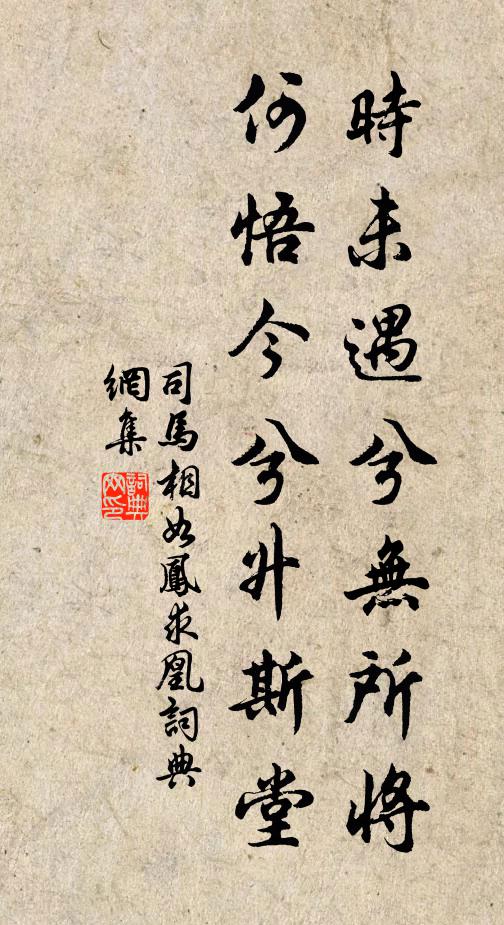 時未遇兮無所將
何悟今兮升斯堂
司馬相如鳳求凰詞典
網集
詞典